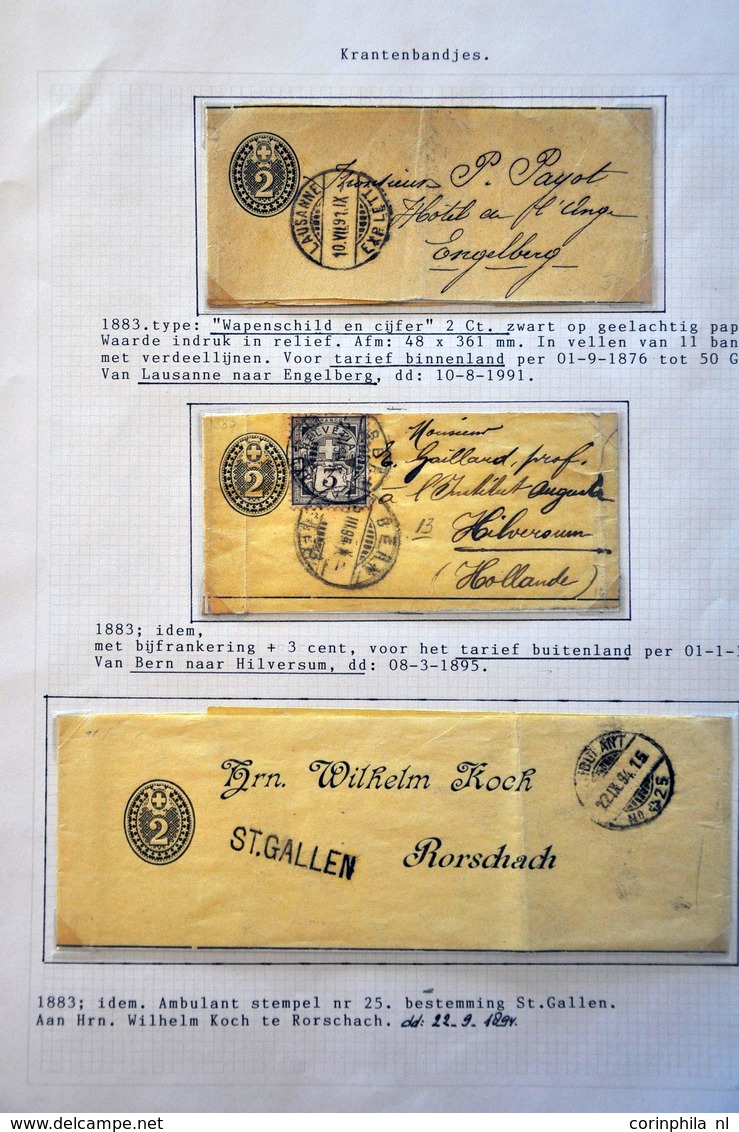 Krantenbandjes.
2
LAUSANNE
10.VII.91.IX
EXP. LETT.
Monsieur P. Payot
Hôtel de l'Ange
Engelberg
1883.type: "Wapenschild en cijfer" 2 Ct. zwart op geelachtig pap
Waarde indruk in relief. Afm: 48 x 361 mm. In vellen van 11 ban
met verdeellijnen. Voor tarief binnenland per 01-9-1876 tot 50 G
Van Lausanne naar Engelberg, dd: 10-8-1991.
1883
2
HELVETIA
3
BERN
III.95
Monsieur
E. Gaillard, prof.
à l'Institut
13
Hilversum
(Hollande)
1883; idem,
met bijfrankering + 3 cent, voor het tarief buitenland per 01-1-1
Van Bern naar Hilversum, dd: 08-3-1895.
2
Hrn. Wilhelm Koch
ST.GALLEN
Rorschach
22.IX.94.15
No 25
1883; idem. Ambulant stempel nr 25. bestemming St.Gallen.
Aan Hrn. Wilhelm Koch te Rorschach. dd: 22-9-1894.
delcampe.net
corinphila nl